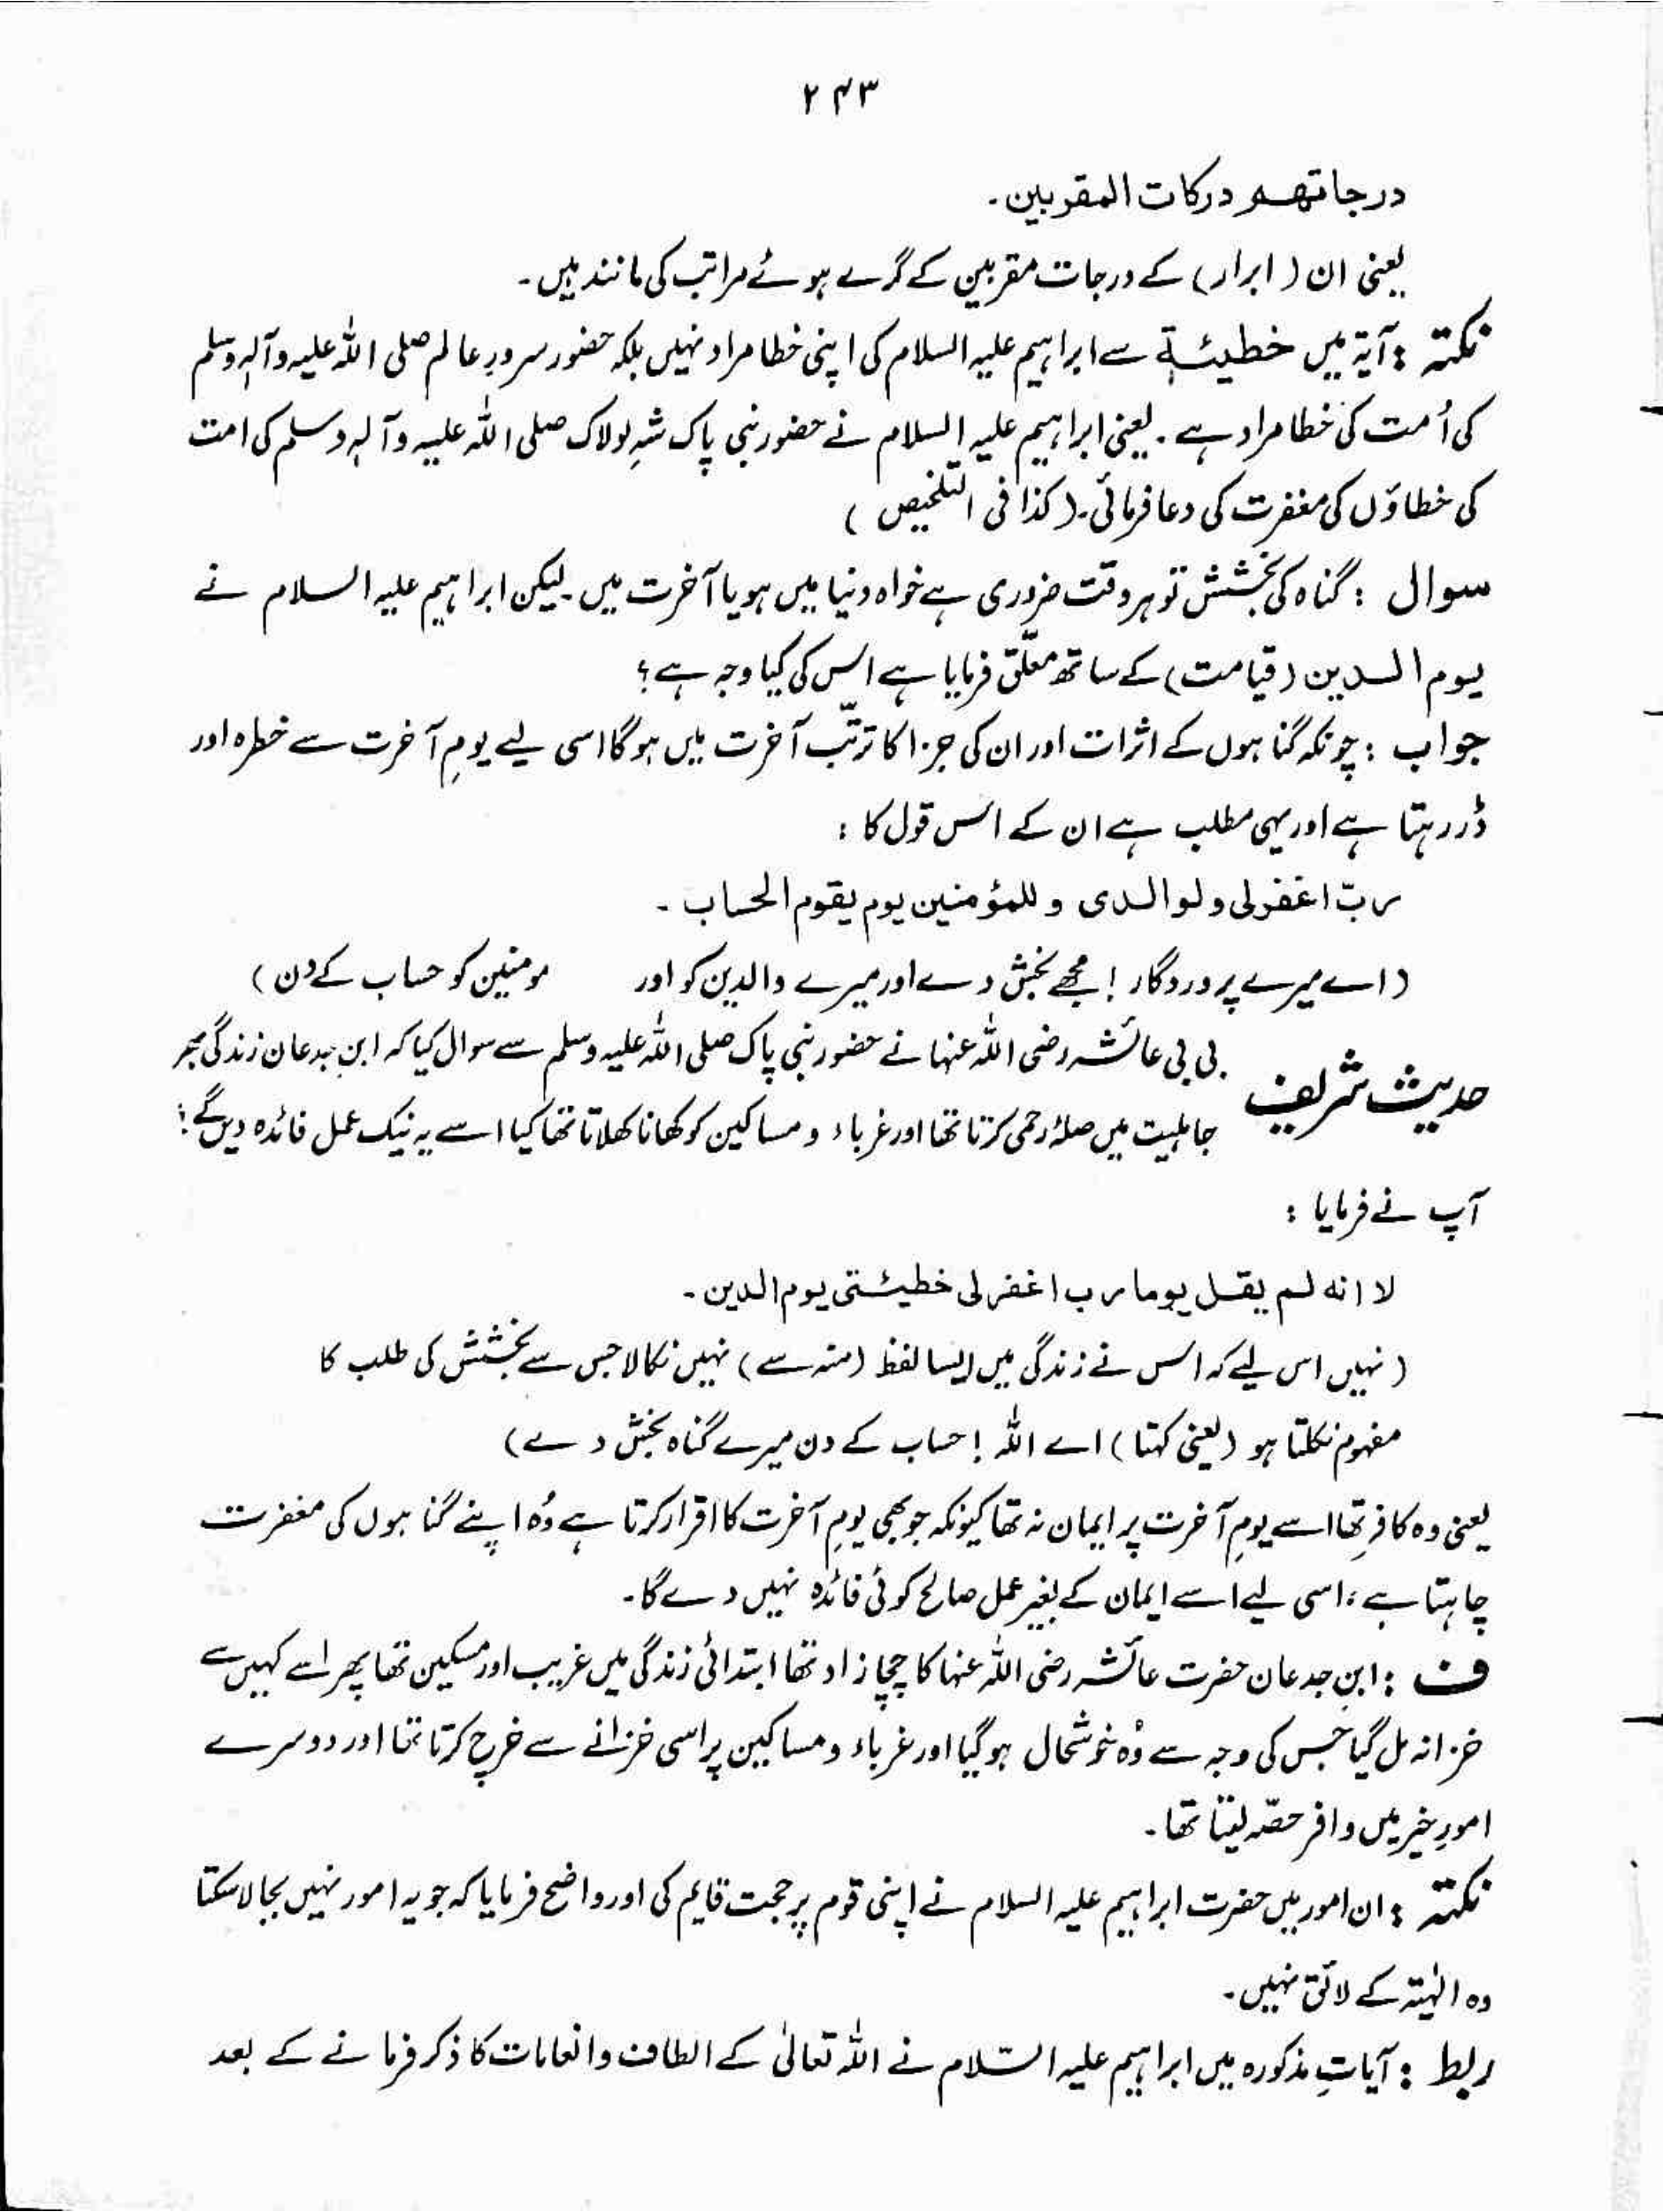 ۲۴۳
درجاتهم دركات المقربين۔
یعنی ان (ابرار) کے درجات مقربین کے گرے ہوئے مراتب کی مانند ہیں۔
نکتہ : آیۃ میں خطیئۃ سے ابراہیم علیہ السلام کی اپنی خطا مراد نہیں بلکہ حضور سرورِ عالم صلی اللہ علیہ وآلہ وسلم
کی اُمت کی خطا مراد ہے۔ یعنی ابراہیم علیہ السلام نے حضور نبی پاک شہِ لولاک صلی اللہ علیہ وآلہ وسلم کی امت
کی خطاؤں کی مغفرت کی دعا فرمائی۔ (کذا فی التلخیص)
سوال : گناہ کی بخشش تو ہر وقت ضروری ہے خواہ دنیا میں ہو یا آخرت میں۔ لیکن ابراہیم علیہ السلام نے
یوم الدین (قیامت) کے ساتھ معلّق فرمایا ہے اس کی کیا وجہ ہے؟
جواب : چونکہ گناہوں کے اثرات اور ان کی جزا کا ترتّب آخرت میں ہوگا اسی لیے یومِ آخرت سے خطرہ اور
ڈر رہتا ہے اور یہی مطلب ہے ان کے اس قول کا :
ربّ اغفرلی ولوالدی و للمؤمنین یوم یقوم الحساب۔
(اے میرے پروردگار! مجھے بخش دے اور میرے والدین کو اور مومنین کو حساب کے دن)
حدیث شریف بی بی عائشہ رضی اللہ عنہا نے حضور نبی پاک صلی اللہ علیہ وسلم سے سوال کیا کہ ابنِ جدعان زندگی بھر
جاہلیت میں صلۂ رحمی کرتا تھا اور غرباء و مساکین کو کھانا کھلاتا تھا کیا اسے یہ نیک عمل فائدہ دیں گے؟
آپ نے فرمایا :
لا انه لم يقل يوما رب اغفر لی خطیئتی یوم الدین۔
(نہیں اس لیے کہ اس نے زندگی میں ایسا لفظ (منہ سے) نہیں نکالا جس سے بخشش کی طلب کا
مفہوم نکلتا ہو (یعنی کہتا) اے اللہ! حساب کے دن میرے گناہ بخش دے)
یعنی وہ کافر تھا اسے یومِ آخرت پر ایمان نہ تھا کیونکہ جو بھی یومِ آخرت کا اقرار کرتا ہے وُہ اپنے گناہوں کی مغفرت
چاہتا ہے، اسی لیے اسے ایمان کے بغیر عمل صالح کوئی فائدہ نہیں دے گا۔
ف : ابنِ جدعان حضرت عائشہ رضی اللہ عنہا کا چچازاد تھا ابتدائی زندگی میں غریب اور مسکین تھا پھر اسے کہیں سے
خزانہ مل گیا جس کی وجہ سے وُہ خوشحال ہوگیا اور غرباء و مساکین پر اسی خزانے سے خرچ کرتا تھا اور دوسرے
امورِ خیر میں وافر حصّہ لیتا تھا۔
نکتہ : ان امور میں حضرت ابراہیم علیہ السلام نے اپنی قوم پر حجت قایم کی اور واضح فرمایا کہ جو یہ امور نہیں بجا لا سکتا
وہ الٰہیۃ کے لائق نہیں۔
ربط : آیاتِ مذکورہ میں ابراہیم علیہ السّلام نے اللہ تعالیٰ کے الطاف و انعامات کا ذکر فرمانے کے بعد